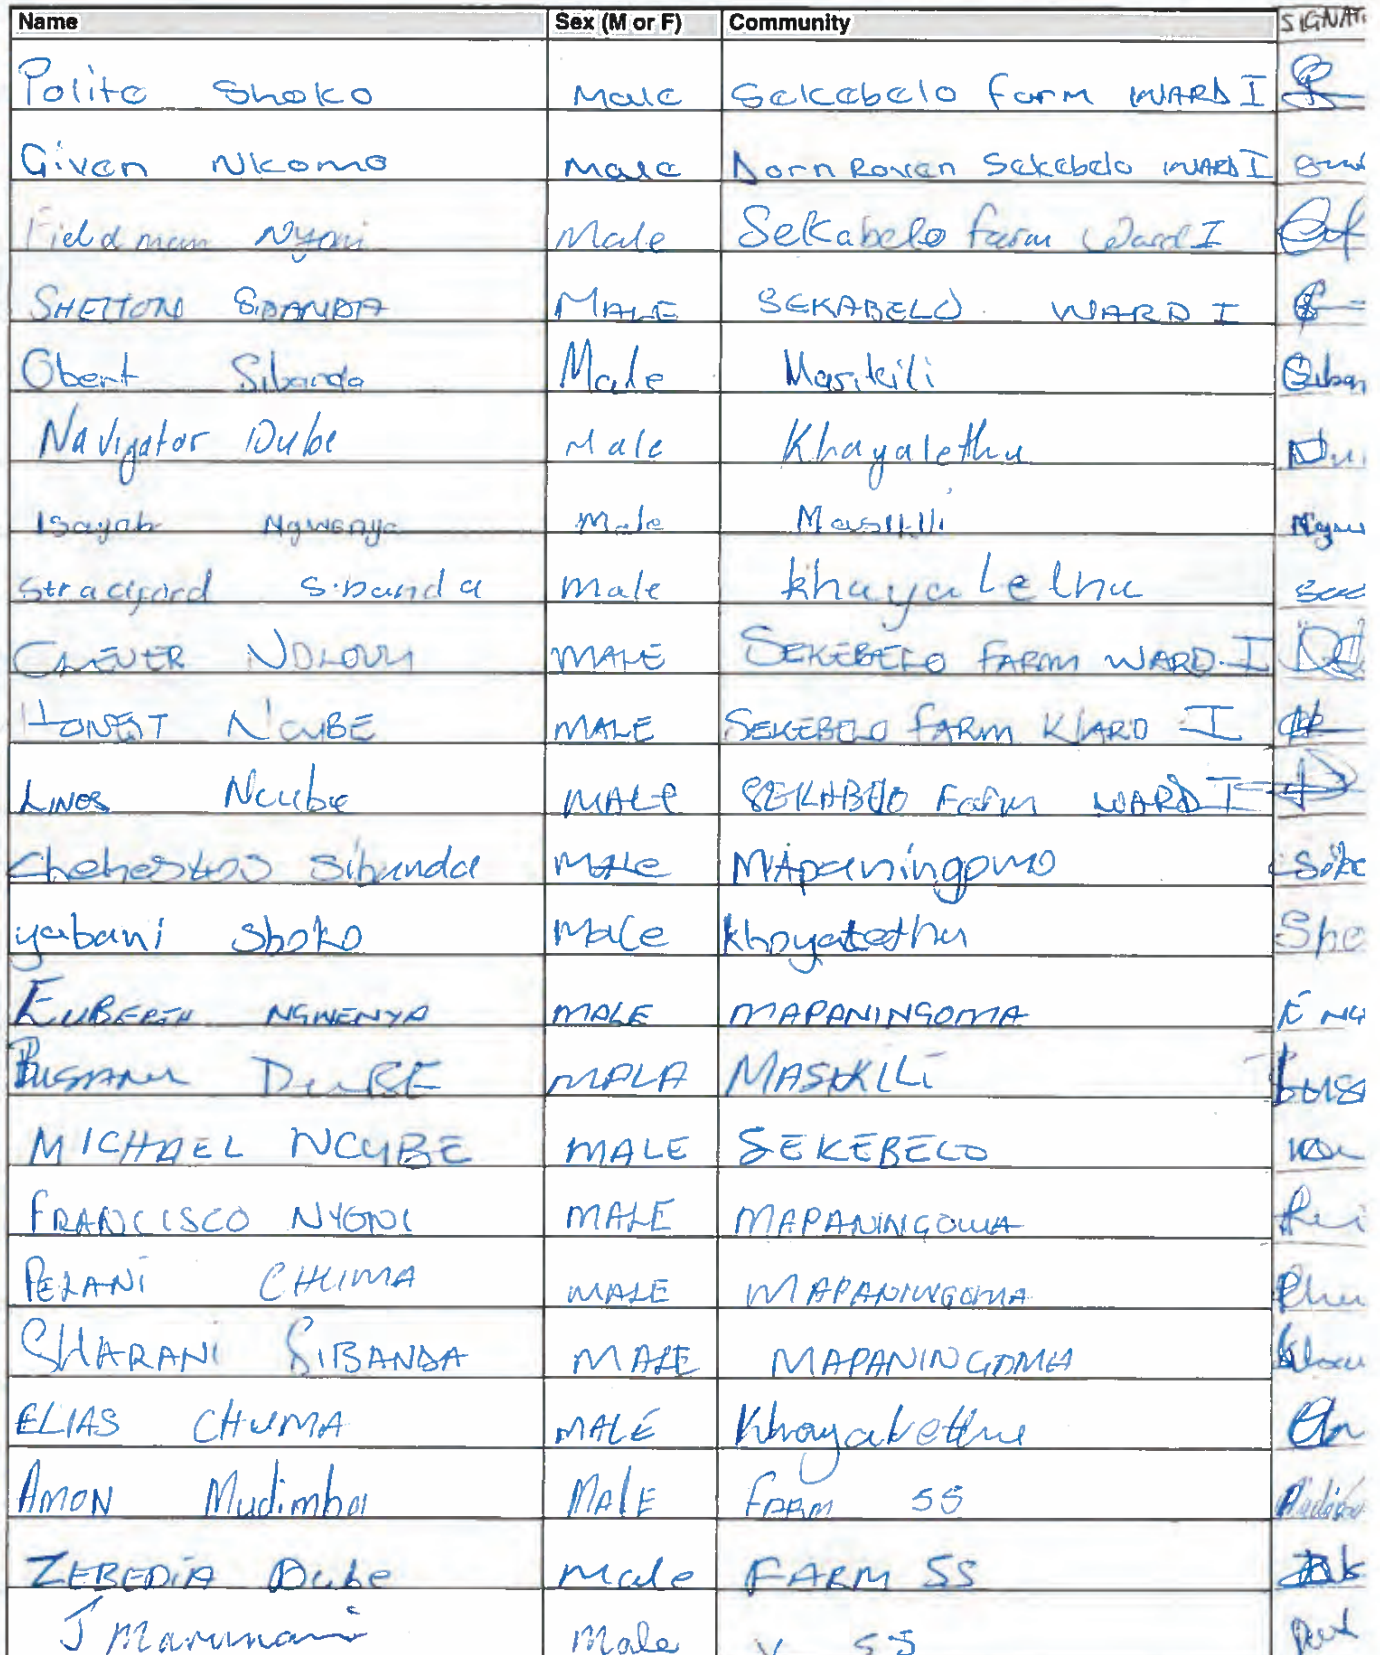 Name Sex (M or F) Community SIGNAT
Polite Shoko Male Sekebelo Farm WARD I
Given Nkomo Male Dorn Roven Sekebelo WARD I
Fieldman Nyoni Male Sekabelo farm Ward I
SHETTON SIBANDA MALE SEKABELO WARD I
Obert Sibanda Male Masikili Siban
Navigator Dube Male Khayalethu Du
Isayah Ngwenya Male Masikili Ngw
Stradford Sibanda Male Khayalethu
CLEVER NDLOVU MALE SEKEBELO FARM WARD I
HONEST NCUBE MALE SEKEBELO FARM WARD I
LINOS Ncube MALE SEKABELO Farm WARD I
Sibanda MALE MApaningomo
yabani Shoko Male Khayalethu Sho
NGWENYA MALE MAPANINGOMA E NG
DUBE MALA MASIKILI bus
MICHAEL NCUBE MALE SEKEBELO
FRANCISCO NYONI MALE MAPANINGOMA
PEXANI CHUMA MALE MAPANINGOMA Chu
SHARANI SIBANDA MALE MAPANINGOMA
ELIAS CHUMA MALE Khayalethu
AMON Mudimba MALE FARM 55
ZEBEDIA Dube Male FARM 55
J Male 55